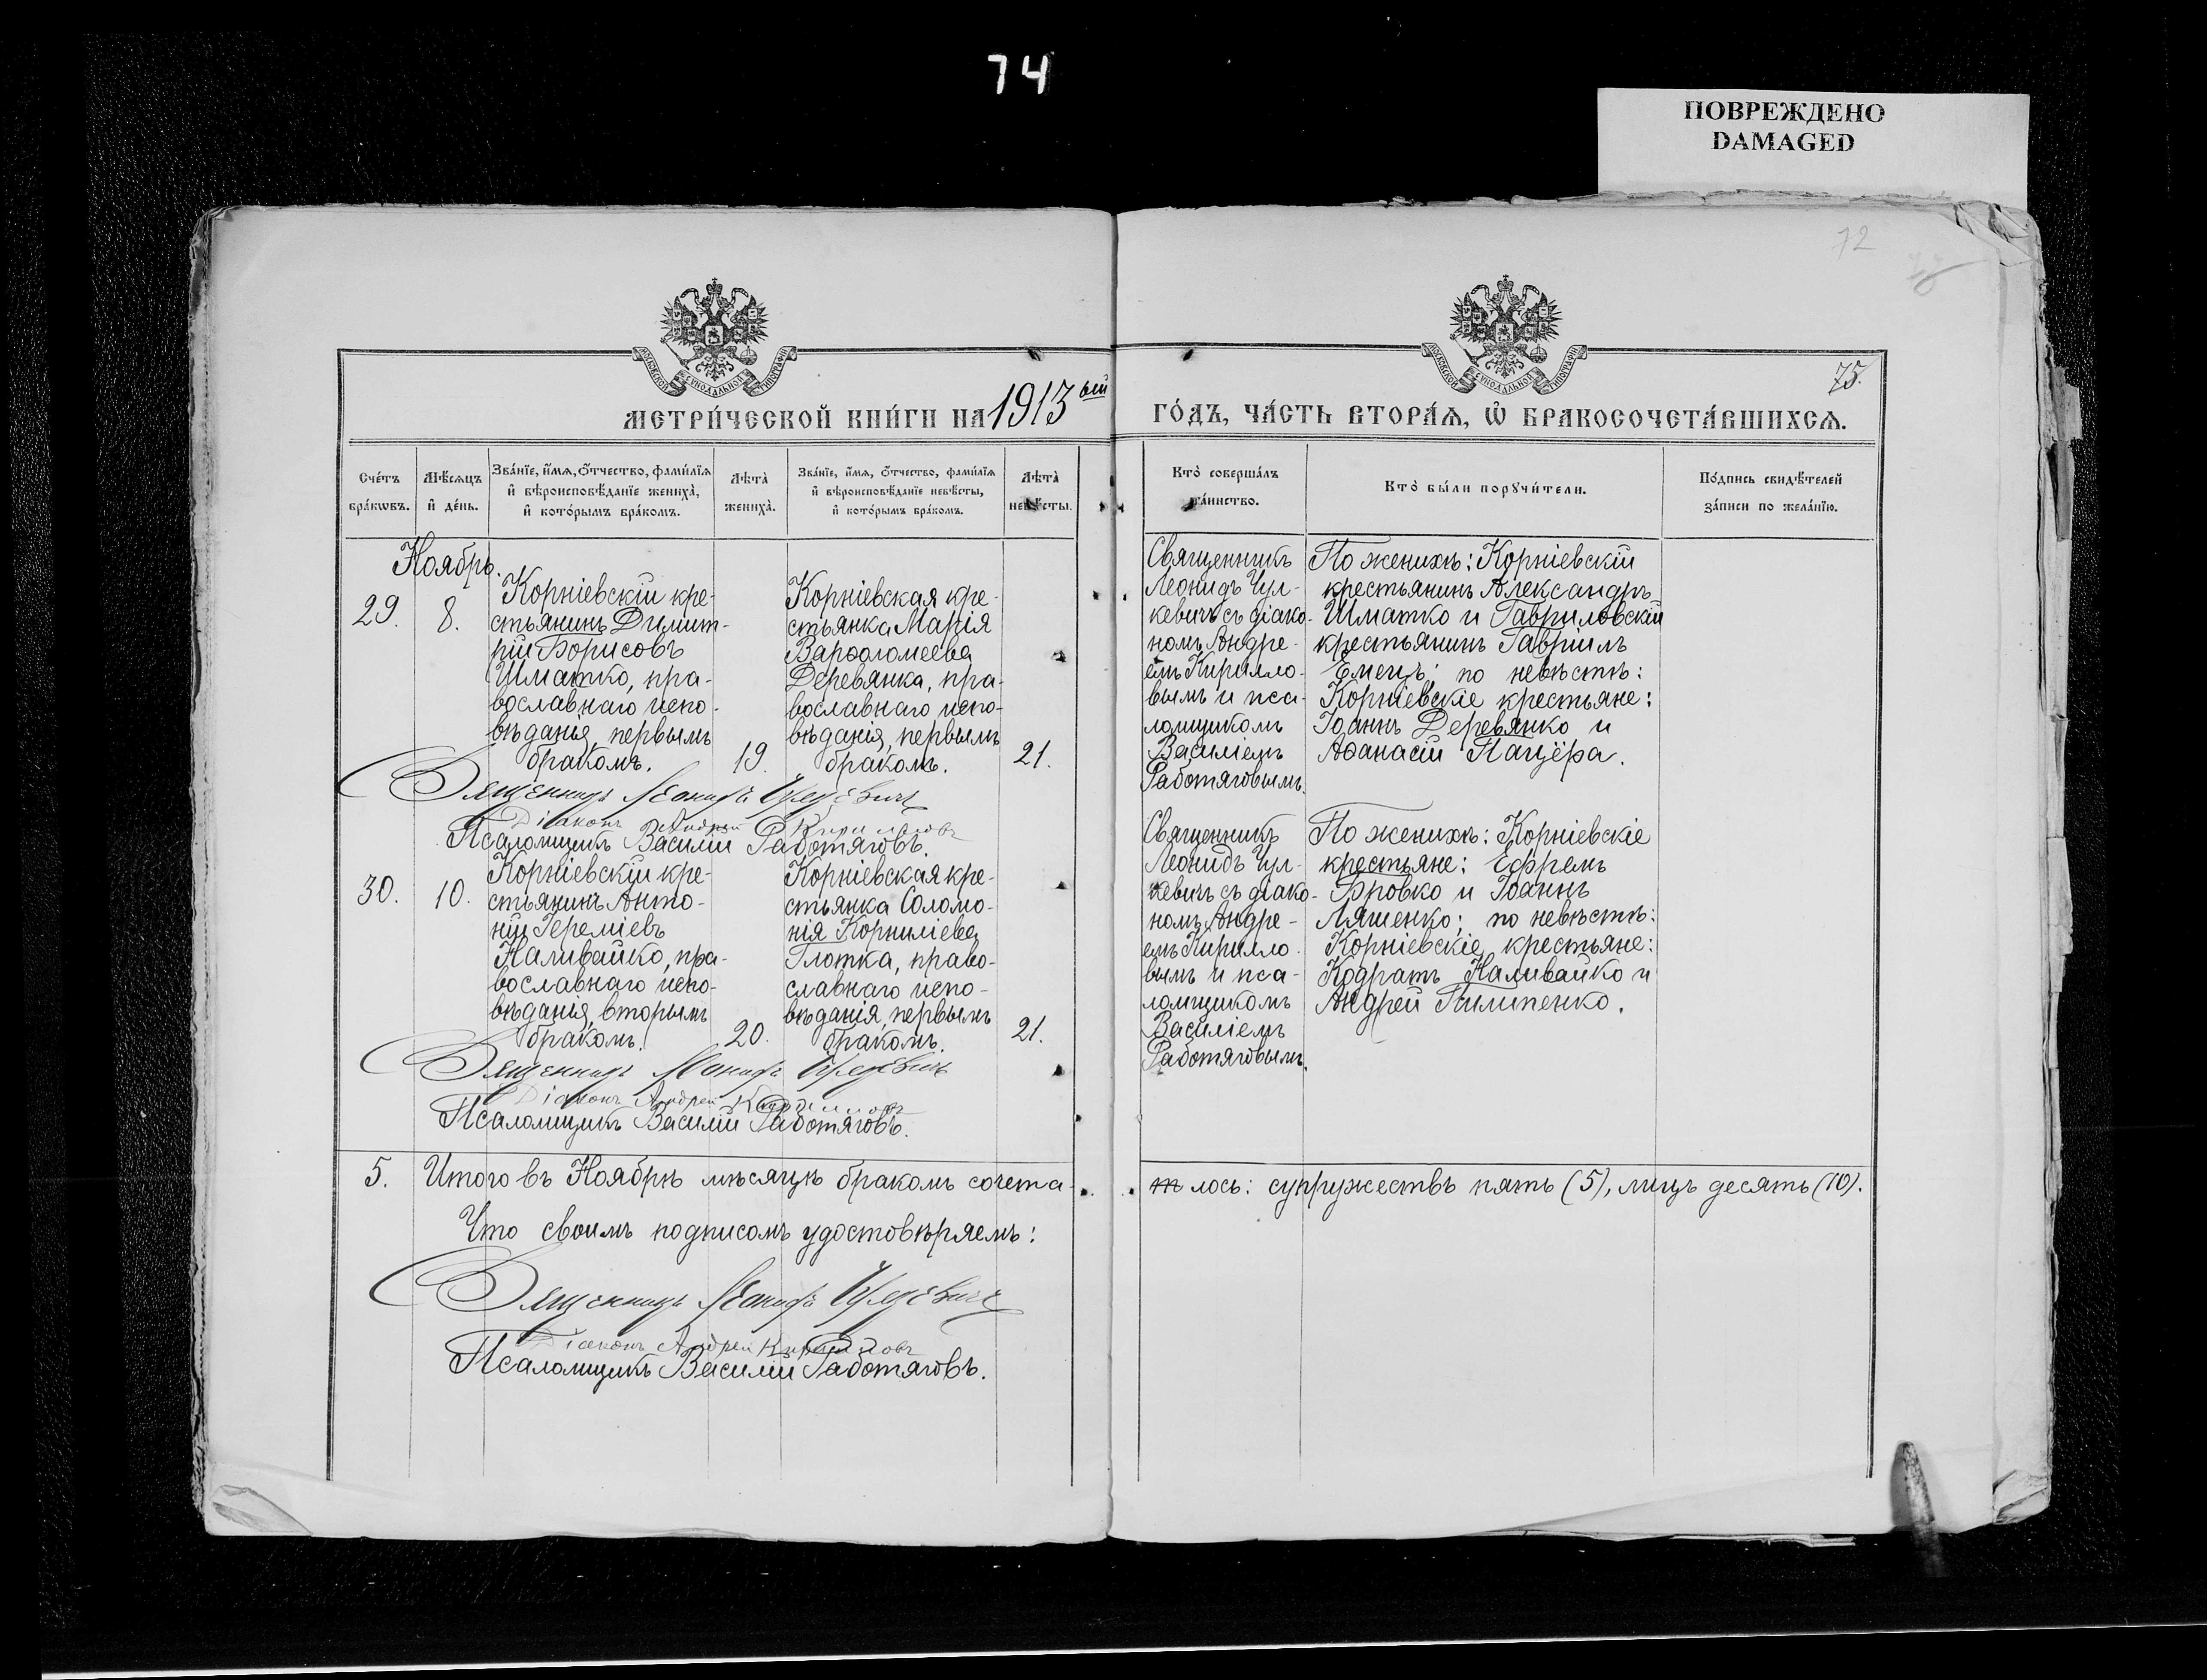 74
ПОВРЕЖДЕНО
DAMAGED
72
МОСКОВСКОЙ СѴНОДАЛЬНОЙ ТИПОГРАФІИ
МОСКОВСКОЙ СѴНОДАЛЬНОЙ ТИПОГРАФІИ
75.
МЕТРИ́ЧЕСКОЙ КНИ́ГИ НА 1913ый ГО́ДЪ, ЧА́СТЬ ВТОРА́Я, Ѡ҆ БРАКОСОЧЕТА́ВШИХСЯ.
Сче́тъ
бра́кѡвъ.
Мѣ́сяцъ
и҆ де́нь.
Зва́нїе, и҆́мя, ѻ҆́тчество, фами́лїя
и҆ вѣроисповѣ́данїе жениха̀,
и҆ кото́рымъ бра́комъ.
Лѣта̀
жениха̀.
Зва́нїе, и҆́мя, ѻ҆́тчество, фами́лїя
и҆ вѣроисповѣ́данїе невѣ́сты,
и҆ кото́рымъ бра́комъ.
Лѣта̀
невѣ́сты.
Кто̀ соверша́лъ
та́инство.
Кто̀ бы́ли порꙋчи́тели.
По́дпись свидѣ́телей
за́писи по жела́нїю.
Ноябрь.
29.
8.
Корніевскій кре-
стьянинъ Димит-
рій Борисовъ
Шматко, пра-
вославнаго испо-
вѣданія, первымъ
бракомъ.
19.
Корніевская кре-
стьянка Марія
Варѳоломеева
Деревянка, пра-
вославнаго испо-
вѣданія, первымъ
бракомъ.
21.
Священникъ
Леонидъ Чул-
кевичъ съ діако-
номъ Андре-
емъ Кирилло-
вымъ и пса-
ломщикомъ
Василіемъ
Работяговымъ.
По женихѣ: Корніевскій
крестьянинъ Александръ
Шматко и Гавриловскій
крестьянинъ Гавріилъ
Емецъ; по невѣстѣ:
Корніевскіе крестьяне:
Іоаннъ Деревянко и
Аѳанасій Пацёра.
Священникъ Леонидъ Чулкевичъ
Діаконъ Андрей Кирилловъ
Псаломщикъ Василій Работяговъ.
30.
10.
Корніевскій кре-
стьянинъ Анто-
ній Іереміевъ
Наливайко, пра-
вославнаго испо-
вѣданія, вторымъ
бракомъ.
20.
Корніевская кре-
стьянка Соломо-
нія Корниліева
Глотка, право-
славнаго испо-
вѣданія, первымъ
бракомъ.
21.
Священникъ
Леонидъ Чул-
кевичъ съ діако-
номъ Андре-
емъ Кирилло-
вымъ и пса-
ломщикомъ
Василіемъ
Работяговымъ.
По женихѣ: Корніевскіе
крестьяне: Ефремъ
Бровко и Іоаннъ
Ляшенко; по невѣстѣ:
Корніевскіе крестьяне:
Кодратъ Наливайко и
Андрей Пилипенко.
Священникъ Леонидъ Чулкевичъ
Діаконъ Андрей Кирилловъ
Псаломщикъ Василій Работяговъ.
5. Итого въ Ноябрѣ мѣсяцѣ бракомъ сочета-
лось: супружествъ пять (5), лицъ десять (10).
Что своимъ подписомъ удостовѣряемъ:
Священникъ Леонидъ Чулкевичъ
Діаконъ Андрей Кирилловъ
Псаломщикъ Василій Работяговъ.